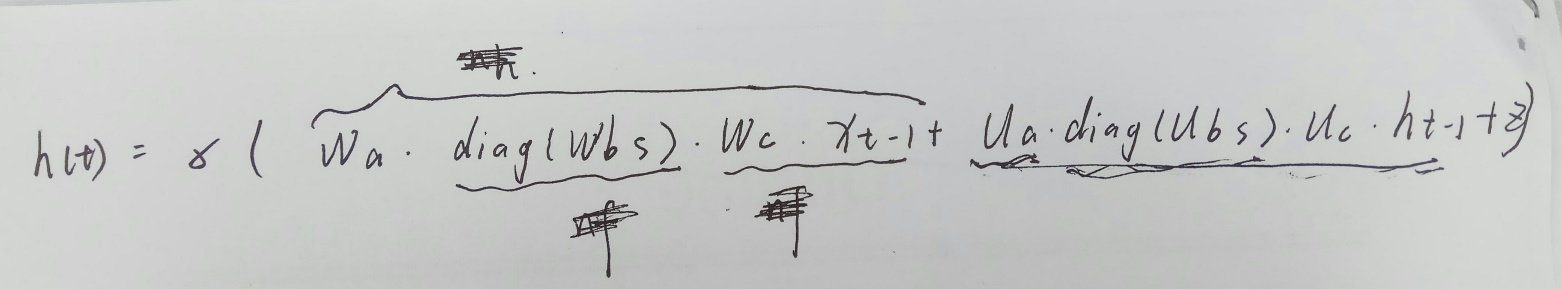 h(t) = σ ( Wa · diag(Wbs) · Wc · xt-1 + Ua · diag(Ubs) · Uc · ht-1 + z)